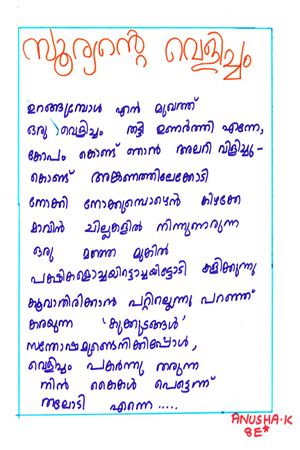 സൂര്യന്റെ വെളിച്ചം
ഉറങ്ങുമ്പോൾ എൻ മുഖത്ത്
ഒരു വെളിച്ചം തട്ടി ഉണർത്തി എന്നെ,
കോപം കൊണ്ട് ഞാൻ അലറി വിളിച്ചു-
കൊണ്ട് അങ്കണത്തിലേക്കോടി
നോക്കി നോക്കുമ്പോഴെൻ കിഴക്കേ
മാവിൻ ചില്ലകളിൽ നിന്നുണരുന്ന
ഒരു മഞ്ഞ മുകിൽ
പക്ഷികളൊച്ചയിട്ടൊച്ചയിട്ടോടി കളിക്കുന്നു
കൂവാതിരിക്കാൻ പറ്റില്ലെന്നു പറഞ്ഞ്
കരയുന്ന 'കുക്കുടങ്ങൾ'
സന്തോഷമുണ്ടെനിക്കിപ്പോൾ,
വെളിച്ചം പകർന്നു തരുന്ന
നിൻ കൈകൾ പെട്ടെന്ന്
തലോടി എന്നെ .....
ANUSHA.K
8E*